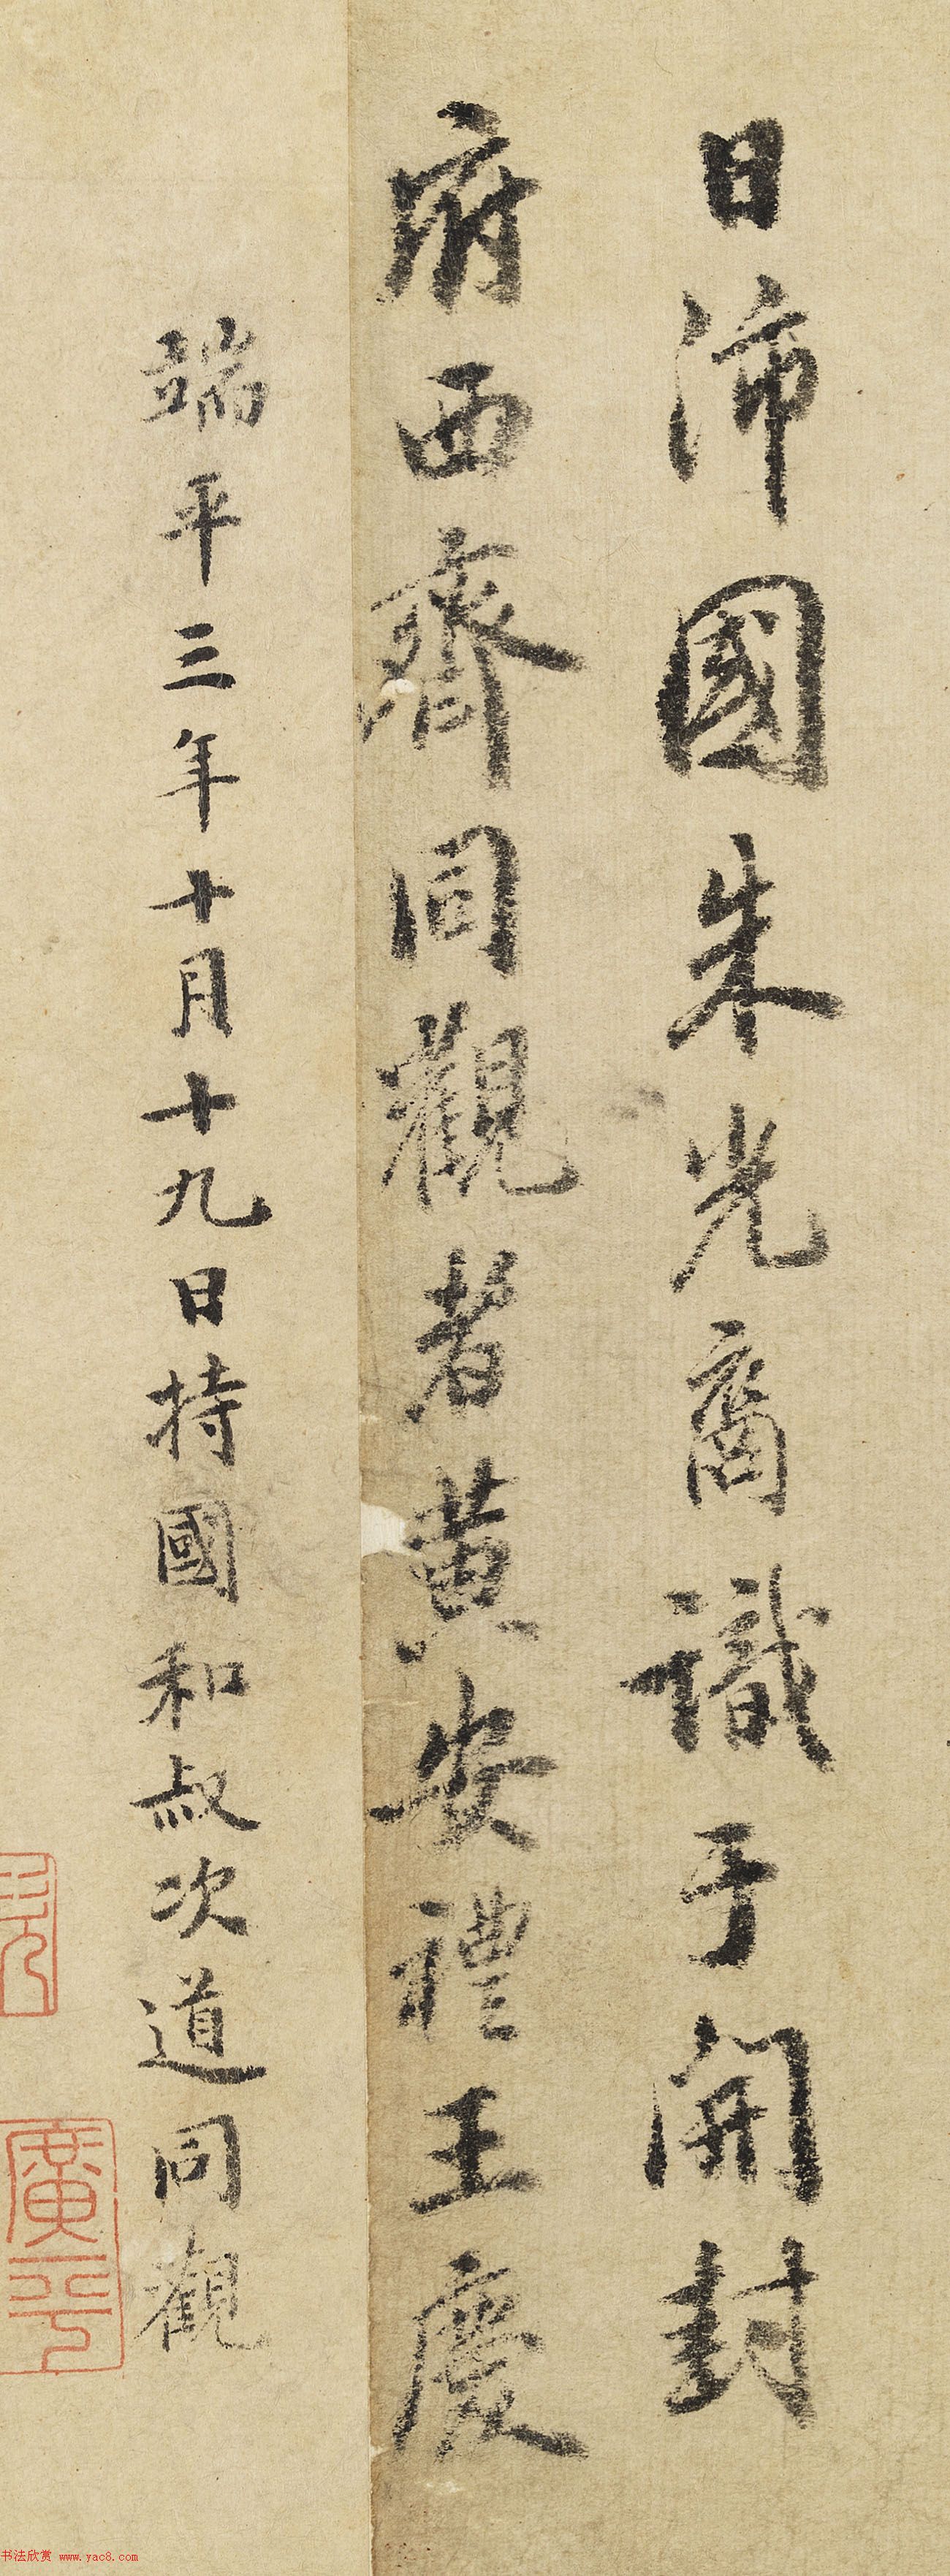 日沛國朱光裔識于開封
府西齊同觀者黃安禮王慶
端平三年十月十九日持國和叔次道同觀
廣平
书法欣赏 www.yac8.com